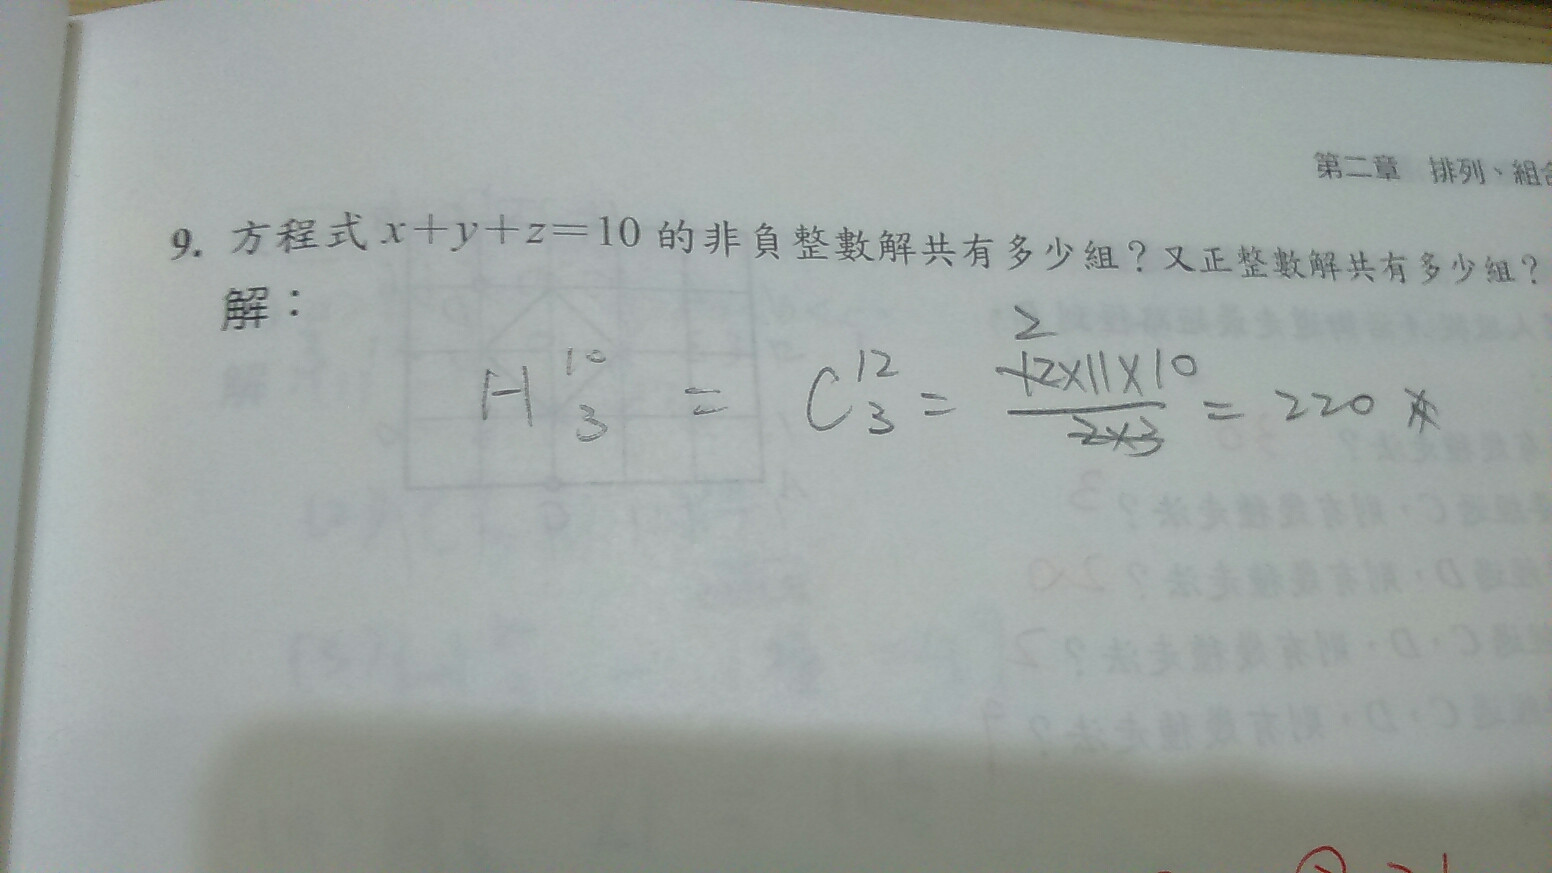 第二章 排列、組合
9. 方程式 x+y+z=10 的非負整數解共有多少組？又正整數解共有多少組？
解：
H^{10}_{3} = C^{12}_{3} = \frac{12×11×10}{2×3} = 220
2